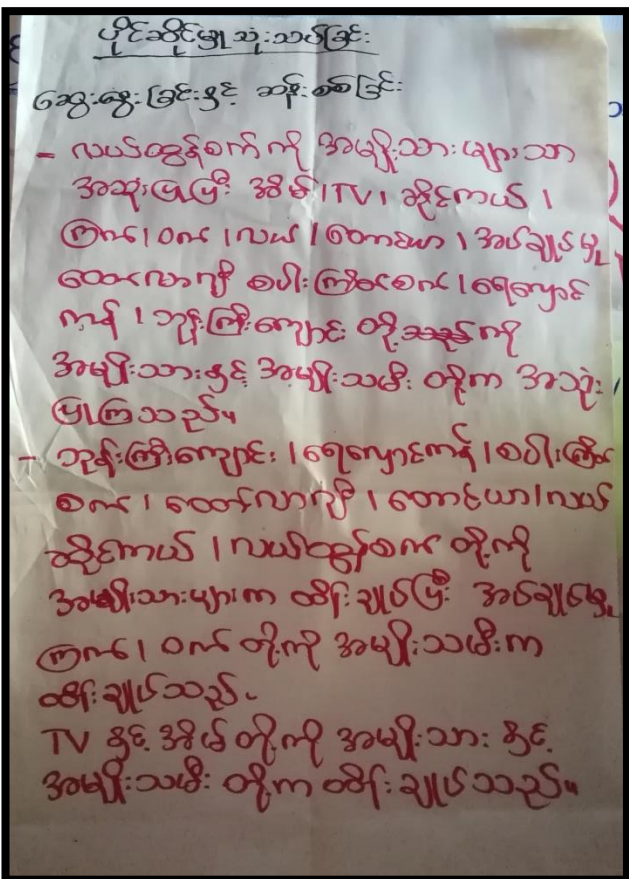 ပိုင်ဆိုင်မှု သုံးသပ်ခြင်း
ဆွေးနွေးခြင်းနှင့် ဆန်းစစ်ခြင်း
- လယ်ထွန်စက်ကို အမျိုးသားများသာ
အသုံးပြုပြီး အိမ်၊ TV၊ ဆိုင်ကယ်၊
ကြက်၊ ဝက်၊ လယ်၊ တောင်ယာ၊ အပ်ချုပ်မှု
ထော်လာဂျီ စပါးကြိတ်စက်၊ ရေလှောင်
ကန်၊ ဘုန်းကြီးကျောင်း တို့ ကို
အမျိုးသားနှင့် အမျိုးသမီး တို့က အသုံး
ပြုကြသည်။
- ဘုန်းကြီးကျောင်း၊ ရေလှောင်ကန်၊ စပါးကြိတ်
စက်၊ ထော်လာဂျီ၊ တောင်ယာ၊ လယ်
ဆိုင်ကယ်၊ လယ်ထွန်စက် တို့ကို
အမျိုးသားများက ထိန်းချုပ်ပြီး အပ်ချုပ်မှု
ကြက်၊ ဝက် တို့ကို အမျိုးသမီးက
ထိန်းချုပ်သည်။
TV နှင့် အိမ် တို့ကို အမျိုးသား နှင့်
အမျိုးသမီး တို့က ထိန်းချုပ်သည်။